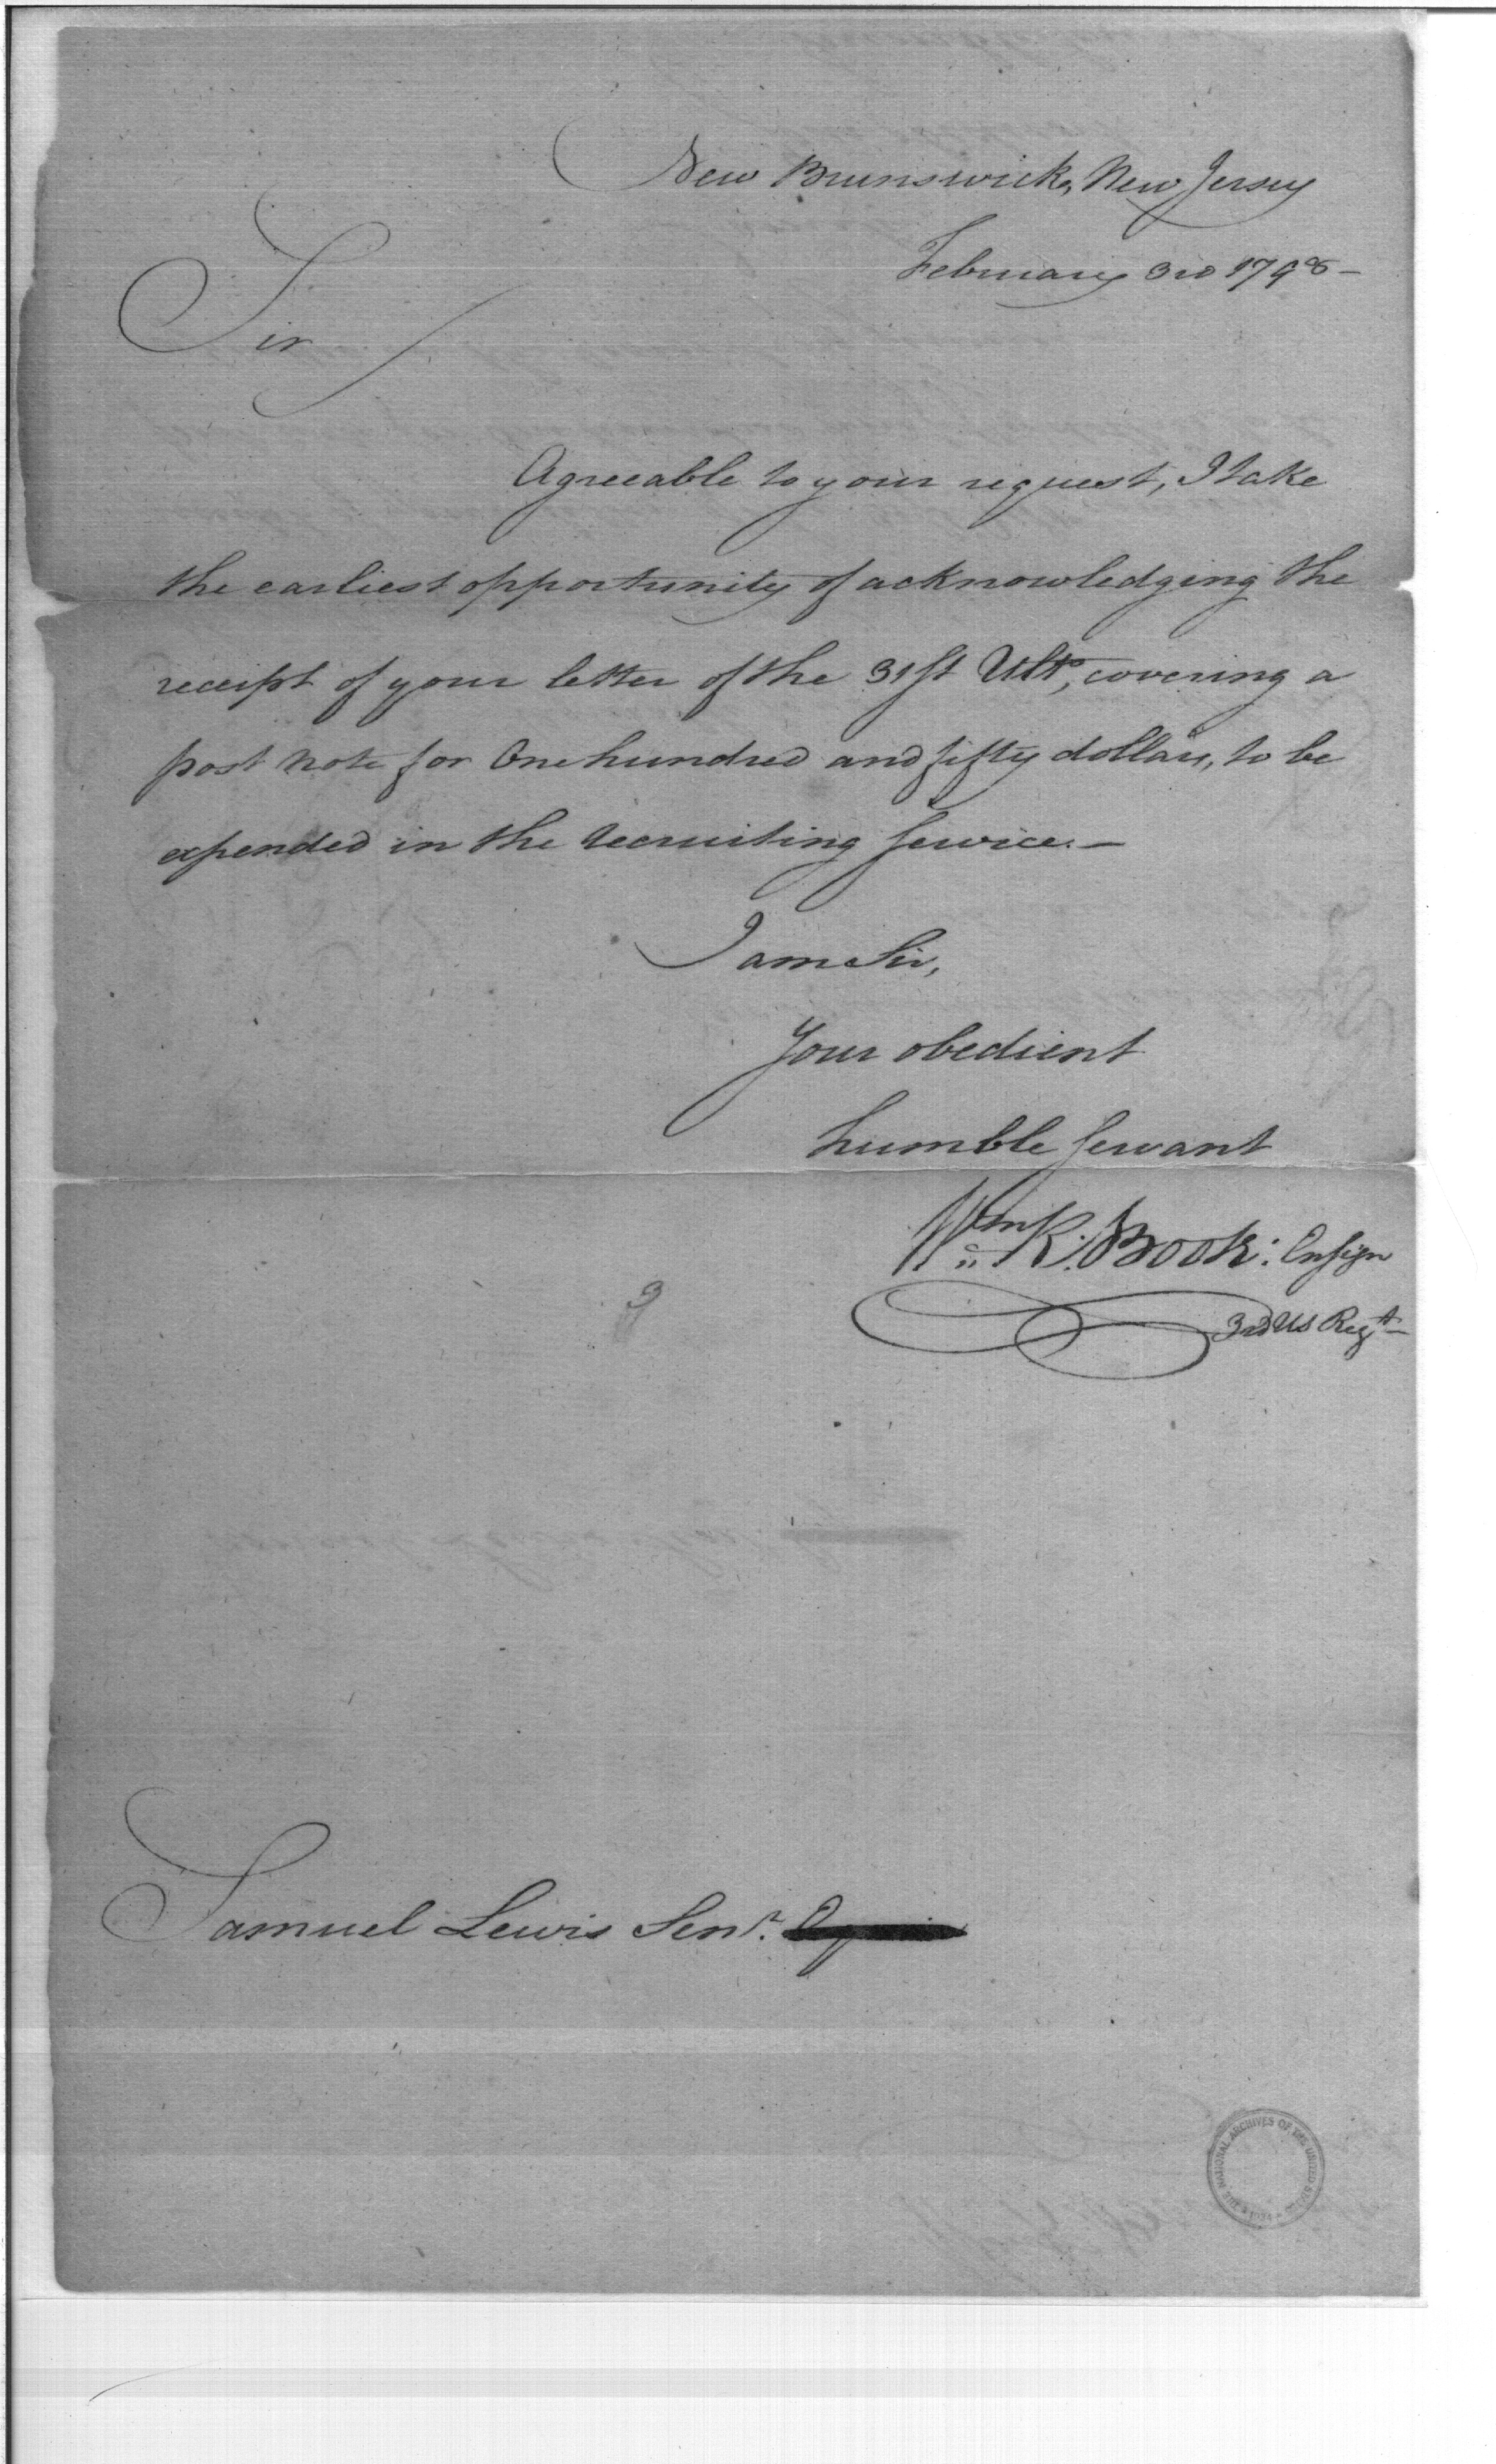 New Brunswick, New Jersey
February 3rd 1798 –
Sir
Agreeable to your request, I take
the earliest opportunity of acknowledging the
receipt of your letter of the 31st Ulto, covering a
post note for One hundred and fifty dollars, to be
expended in the recruiting Service. –
I am Sir,
Your obedient
humble Servant
Wm K. Book: Ensign
3rd US Regt –
Samuel Lewis Senr.
THE NATIONAL ARCHIVES OF THE UNITED STATES